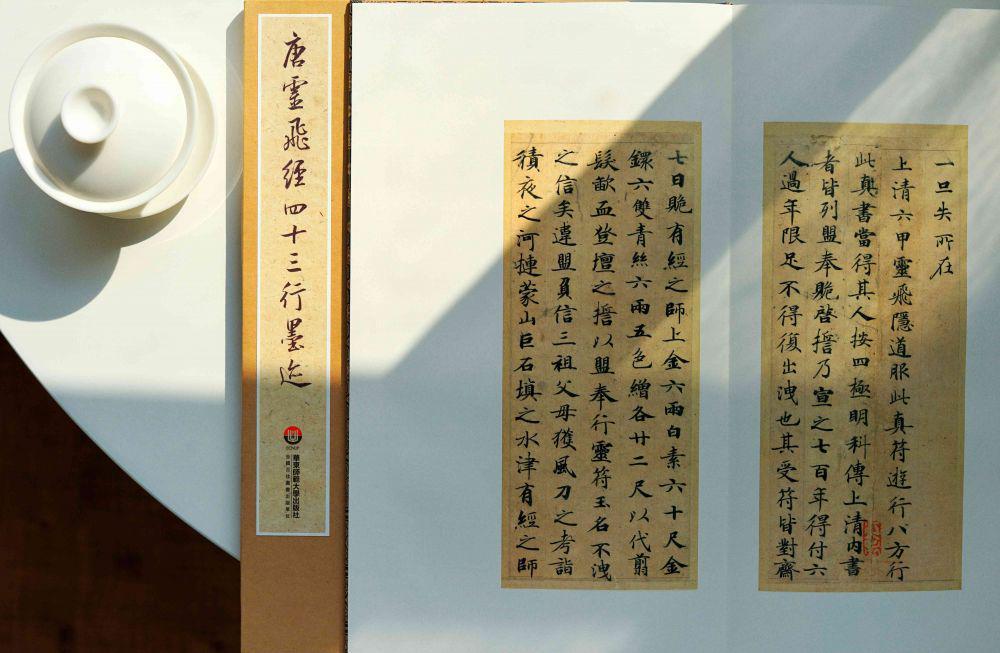 唐靈飛經四十三行墨迹
ECNUP
華東師範大學出版社
全國百佳圖書出版單位
一旦失所在
上清六甲靈飛隱道服此真符遊行八方行
此真書當得其人按四極明科傳上清內書
者皆列盟奉賝啓擔乃宣之七百年得付六
人過年限足不得復出洩也其受符皆對齋
七日賝有經之師上金六兩白素六十尺金
鐶六雙青絲六兩五色繒各廿二尺以代翦
髮歃血登壇之擔以盟奉行靈符玉名不洩
之信矣違盟負信三祖父母獲風刀之考詣
積夜之河揵蒙山巨石填之水津有經之師